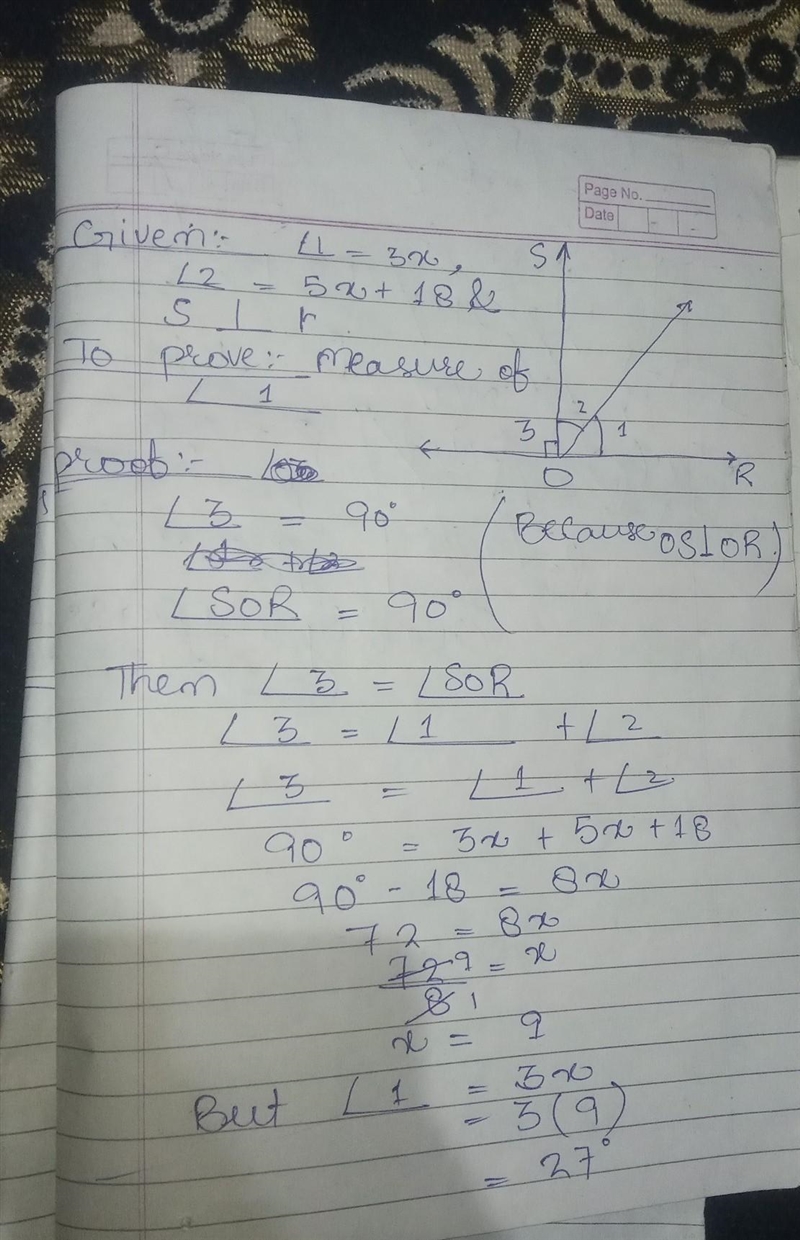 Page No.
Date
Given:- ∠1 = 3x,
∠2 = 5x + 18 &
S ⊥ r
To prove:- Measure of
∠1
S
3
2
1
O
R
proof:-
∠3 = 90°
∠SOR = 90°
(Because OS⊥OR.)
Then ∠3 = ∠SOR
∠3 = ∠1 + ∠2
∠3 = ∠1 + ∠2
90° = 3x + 5x + 18
90° - 18 = 8x
72 = 8x
72 9 = x
8 1
x = 9
But ∠1 = 3x
= 3(9)
= 27°